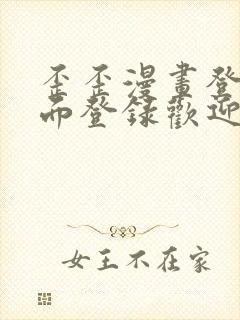 歪歪漫畫登
而登錄歡迎
女王不在家